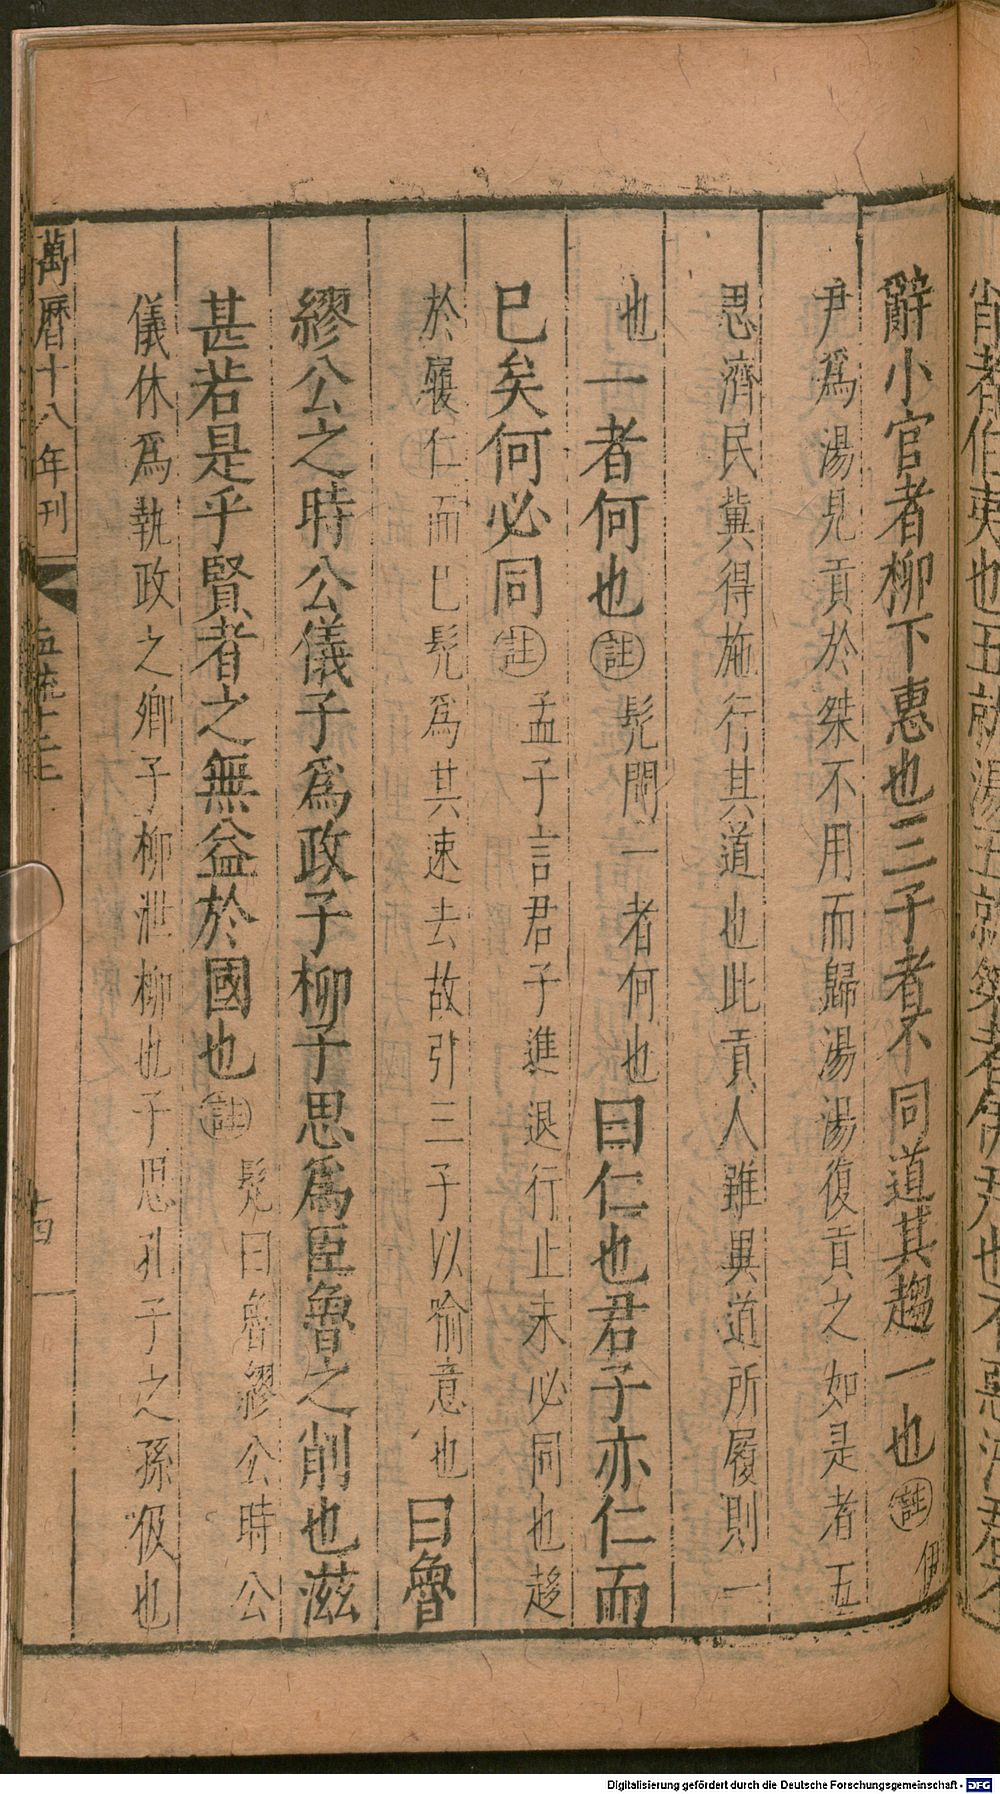 肖者伯夷也五就湯五就桀者伊尹也不惡汙君不
辭小官者柳下惠也三子者不同道其趨一也註伊
尹爲湯見貢於桀不用而歸湯湯復貢之如是者五
思濟民冀得施行其道也此貢人雖異道所履則一
也一者何也註髠問一者何也曰仁也君子亦仁而
已矣何必同註孟子言君子進退行止未必同也趍
於履仁而已髠爲其速去故引三子以喻意也曰魯
繆公之時公儀子爲政子柳子思爲臣魯之削也滋
甚若是乎賢者之無益於國也註髠曰魯繆公時公
儀休爲執政之卿子柳泄柳也子思孔子之孫伋也
萬曆十八年刊
孟疏十二上
十四
Digitalisierung gefördert durch die Deutsche Forschungsgemeinschaft - DFG